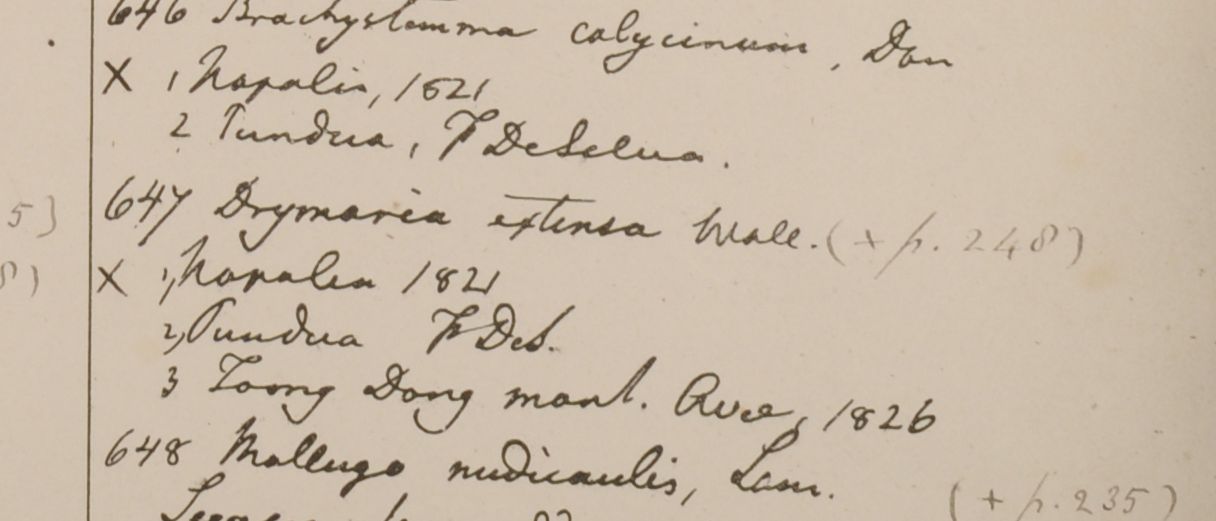 646 Brachystemma calycinum, Don
X 1, Napalia, 1821
2 Tundua, F DeSelua.
5)
647 Drymaria extensa Wall. (+ p. 248)
8)
X 1, Napalia 1821
2, Pundua F DeS.
3 Toong Dong mont. Avae, 1826
648 Mollugo nudicaulis, Lam.
(+ p. 235)